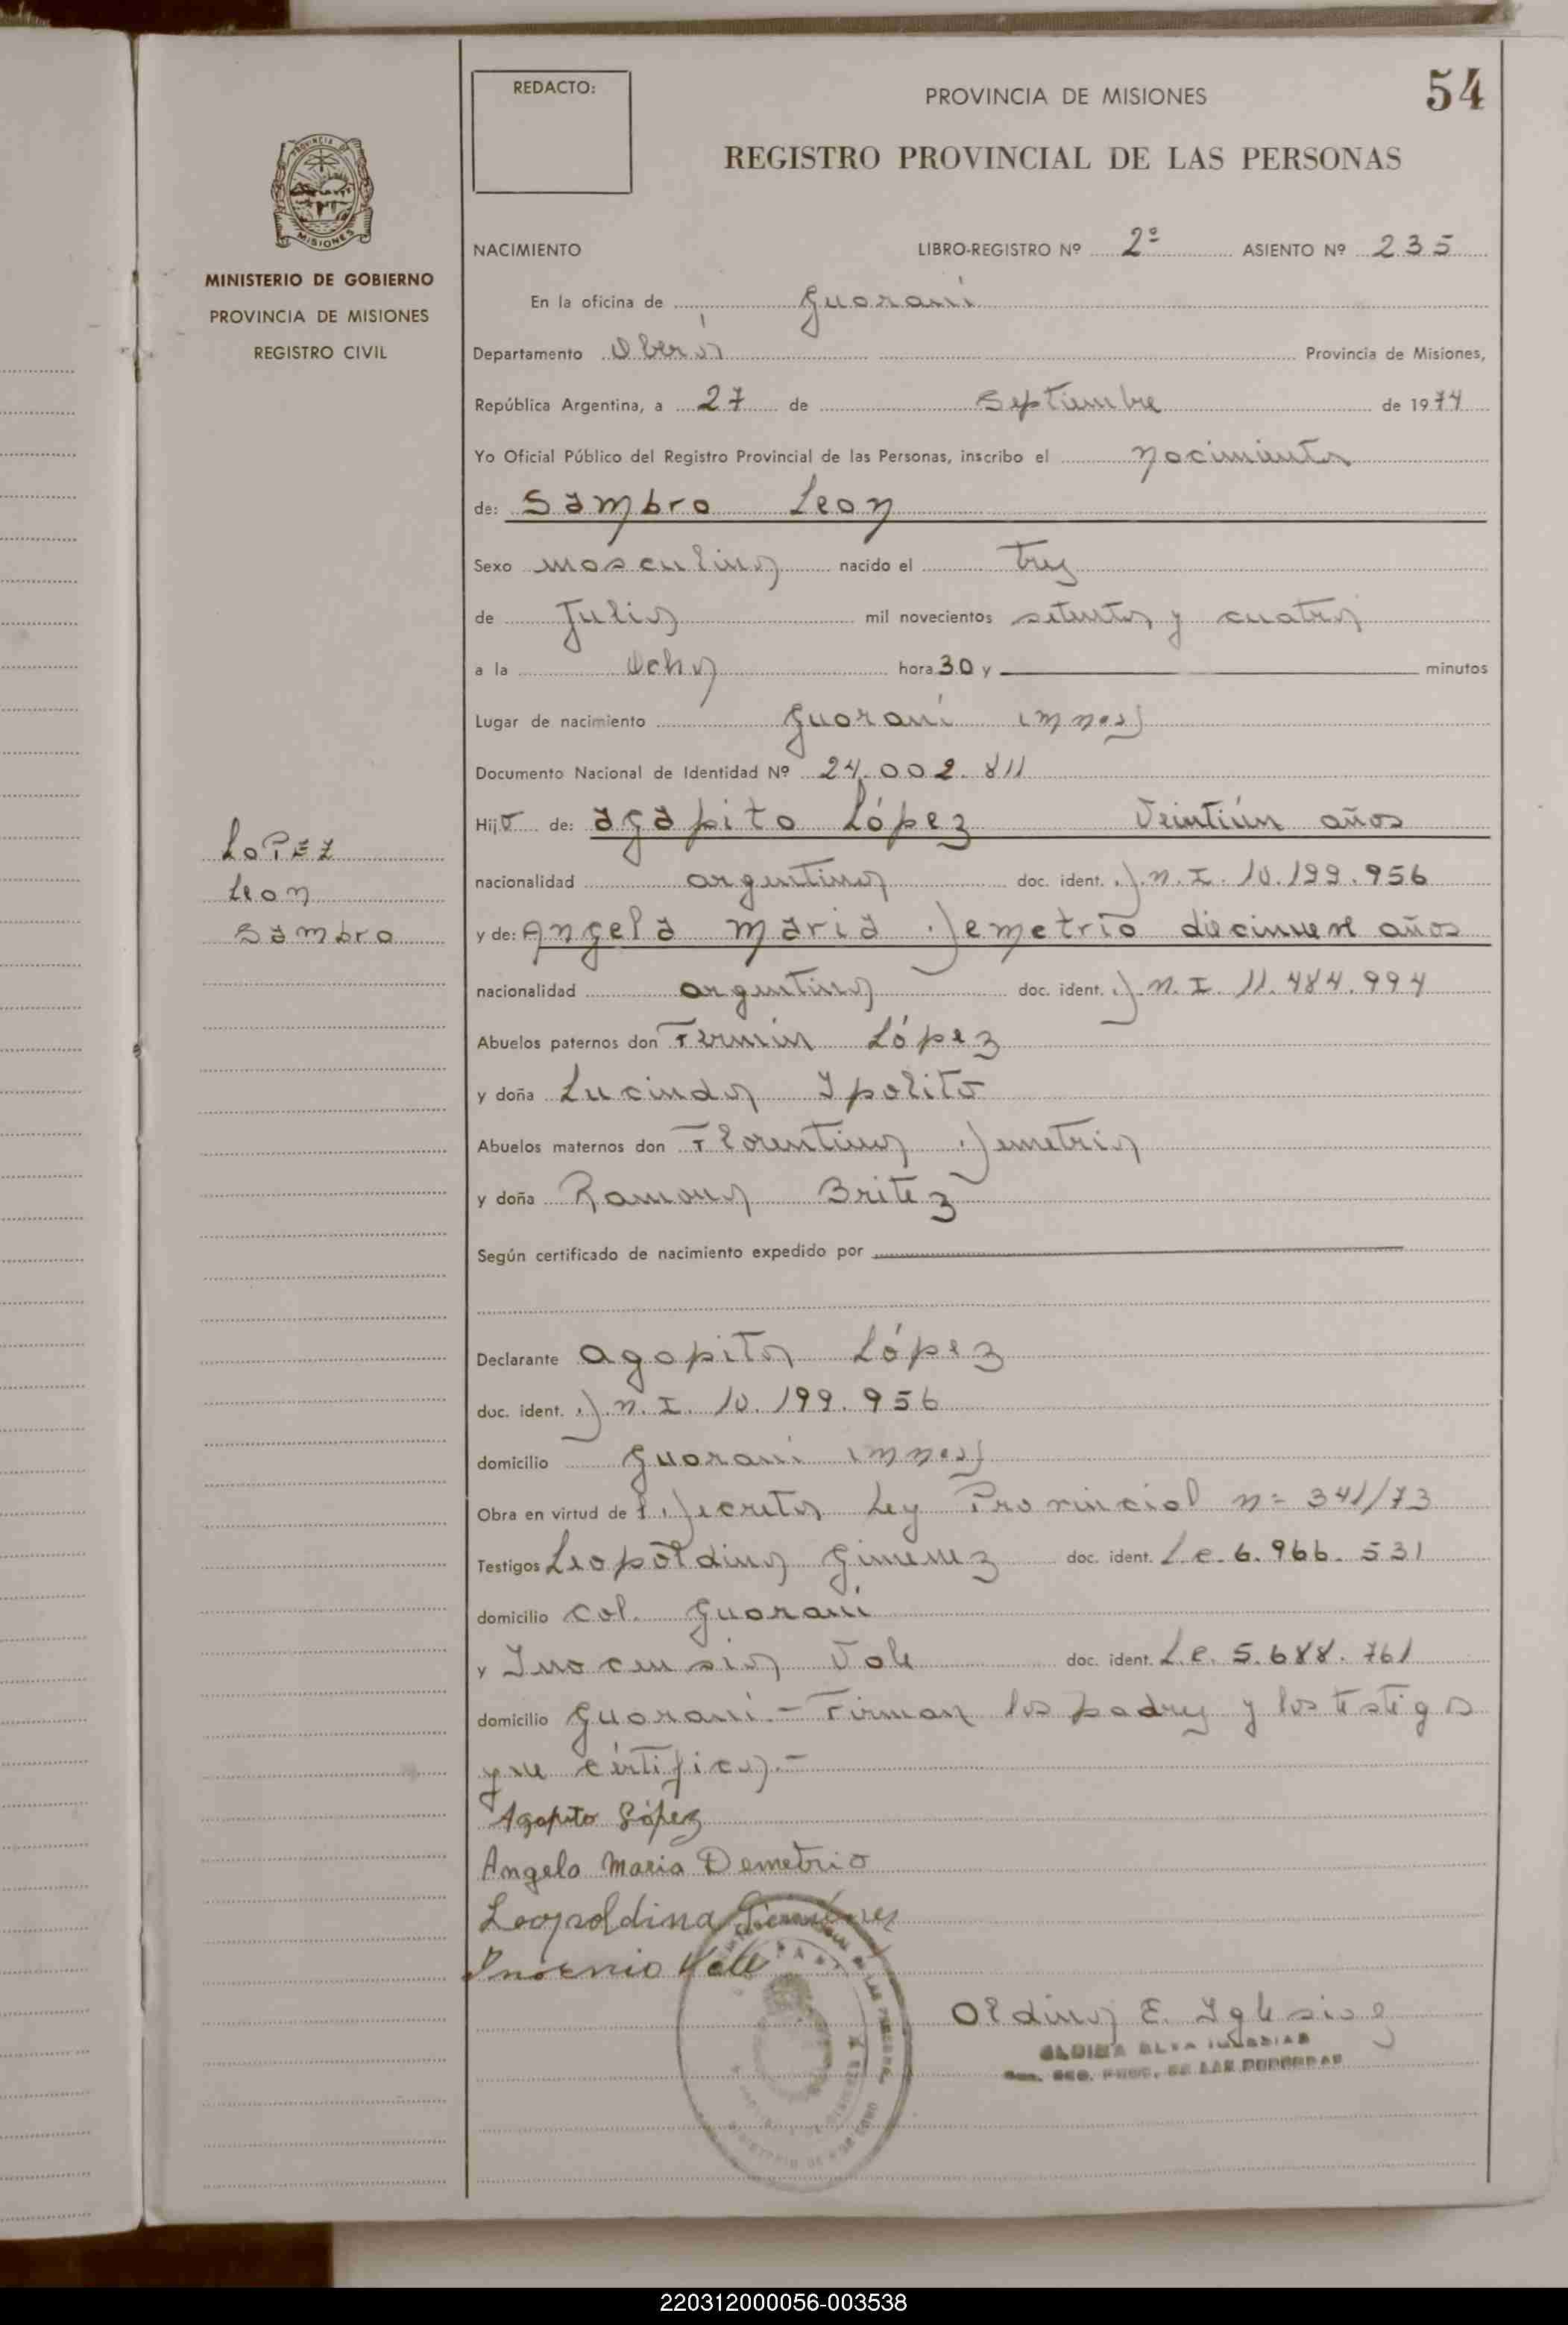 54
REDACTO:
PROVINCIA DE MISIONES
REGISTRO PROVINCIAL DE LAS PERSONAS
MISIONES
MINISTERIO DE GOBIERNO
PROVINCIA DE MISIONES
REGISTRO CIVIL
LOPEZ
Leon
Sambro
NACIMIENTO LIBRO-REGISTRO Nº 2º ASIENTO Nº 235
En la oficina de Guaraní
Departamento Oberá Provincia de Misiones,
República Argentina, a 27 de Septiembre de 1974
Yo Oficial Público del Registro Provincial de las Personas, inscribo el nacimiento
de: Sambro Leon
Sexo masculino nacido el tres
de Julio mil novecientos setenta y cuatro
a la Ocho hora 30 y minutos
Lugar de nacimiento Guaraní (Mnes)
Documento Nacional de Identidad Nº 24.002.811
Hijo de: Agapito López Veintiún años
nacionalidad argentina doc. ident. D.N.I. 10.199.956
y de: Angela Maria Demetrio diecinueve años
nacionalidad argentina doc. ident. D.N.I. 11.484.994
Abuelos paternos don Fermín López
y doña Lucinda Ipolito
Abuelos maternos don Florentino Demetrio
y doña Ramona Britez
Según certificado de nacimiento expedido por
Declarante Agapito López
doc. ident. D.N.I. 10.199.956
domicilio Guaraní (Mnes)
Obra en virtud de l Decreto Ley Provincial n= 341/73
Testigos Leopoldina Gimenez doc. ident. L.C. 6.966.531
domicilio Col. Guaraní
y Inocensio Vale doc. ident. L.E. 5.688.761
domicilio Guaraní.- Firman los padres y los testigos
que certifico.-
Agapito López
Angela Maria Demetrio
Leopoldina Gimenez
Oldina E. Iglesias
OLDINA ELVA IGLESIAS
REG. PROV. DE LAS PERSONAS
220312000056-003538